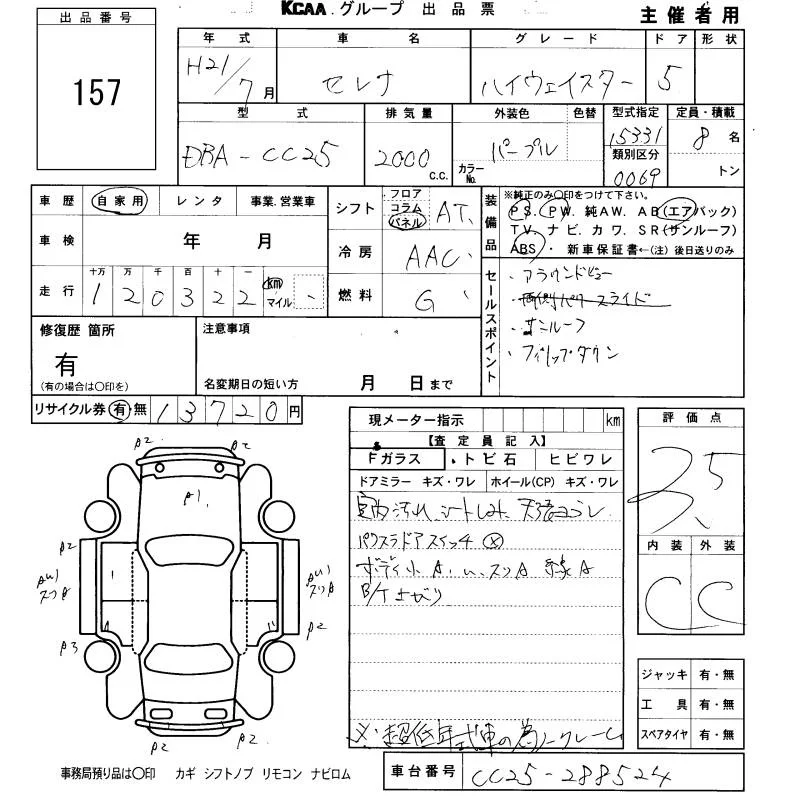 KCAA.グループ 出品票
主催者用
出品番号
157
年式 車名 グレード ドア 形状
H21/7月 セレナ ハイウェイスター 5
型式 排気量 外装色 色替 型式指定 定員・積載
DBA-CC25 2000 c.c. パープル カラーNo. 15331 8名
類別区分
0069 トン
車歴 自家用 レンタ 事業.営業車
車検 年 月
走行 十万 万 千 百 十 一
120322 km マイル
シフト フロア コラム パネル AT
冷房 AAC
燃料 G
装備品
※純正のみ〇印をつけて下さい。
PS. PW. 純AW. AB(エアバック)
TV. ナビ. カワ. SR(サンルーフ)
ABS・新車保証書←(注)後日送りのみ
セールスポイント
・アラウンドビュー
・両側パワースライド
・サンルーフ
・フリップダウン
修復歴 箇所
有
(有の場合は〇印を)
注意事項
名変期日の短い方 月 日まで
リサイクル券 有・無 13720円
現メーター指示 km
【査定員記入】
Fガラス ・トビ石 ヒビワレ
ドアミラー キズ・ワレ ホイール(CP) キズ・ワレ
室内汚れ、シートしみ、天張ヨゴレ
パワスラドアスイッチ ⓧ
ボディ小A.
B/Tサビ有り
※超低年式車の為ノークレーム
評価点
3.5
内装 外装
C C
ジャッキ 有・無
工具 有・無
スペアタイヤ 有・無
A2 A2
A1
A2
AU1 スリA
A3
AU1 スリA
A2
A2 A2
事務局預り品は〇印 カギ シフトノブ リモコン ナビロム
車台番号 CC25-288524